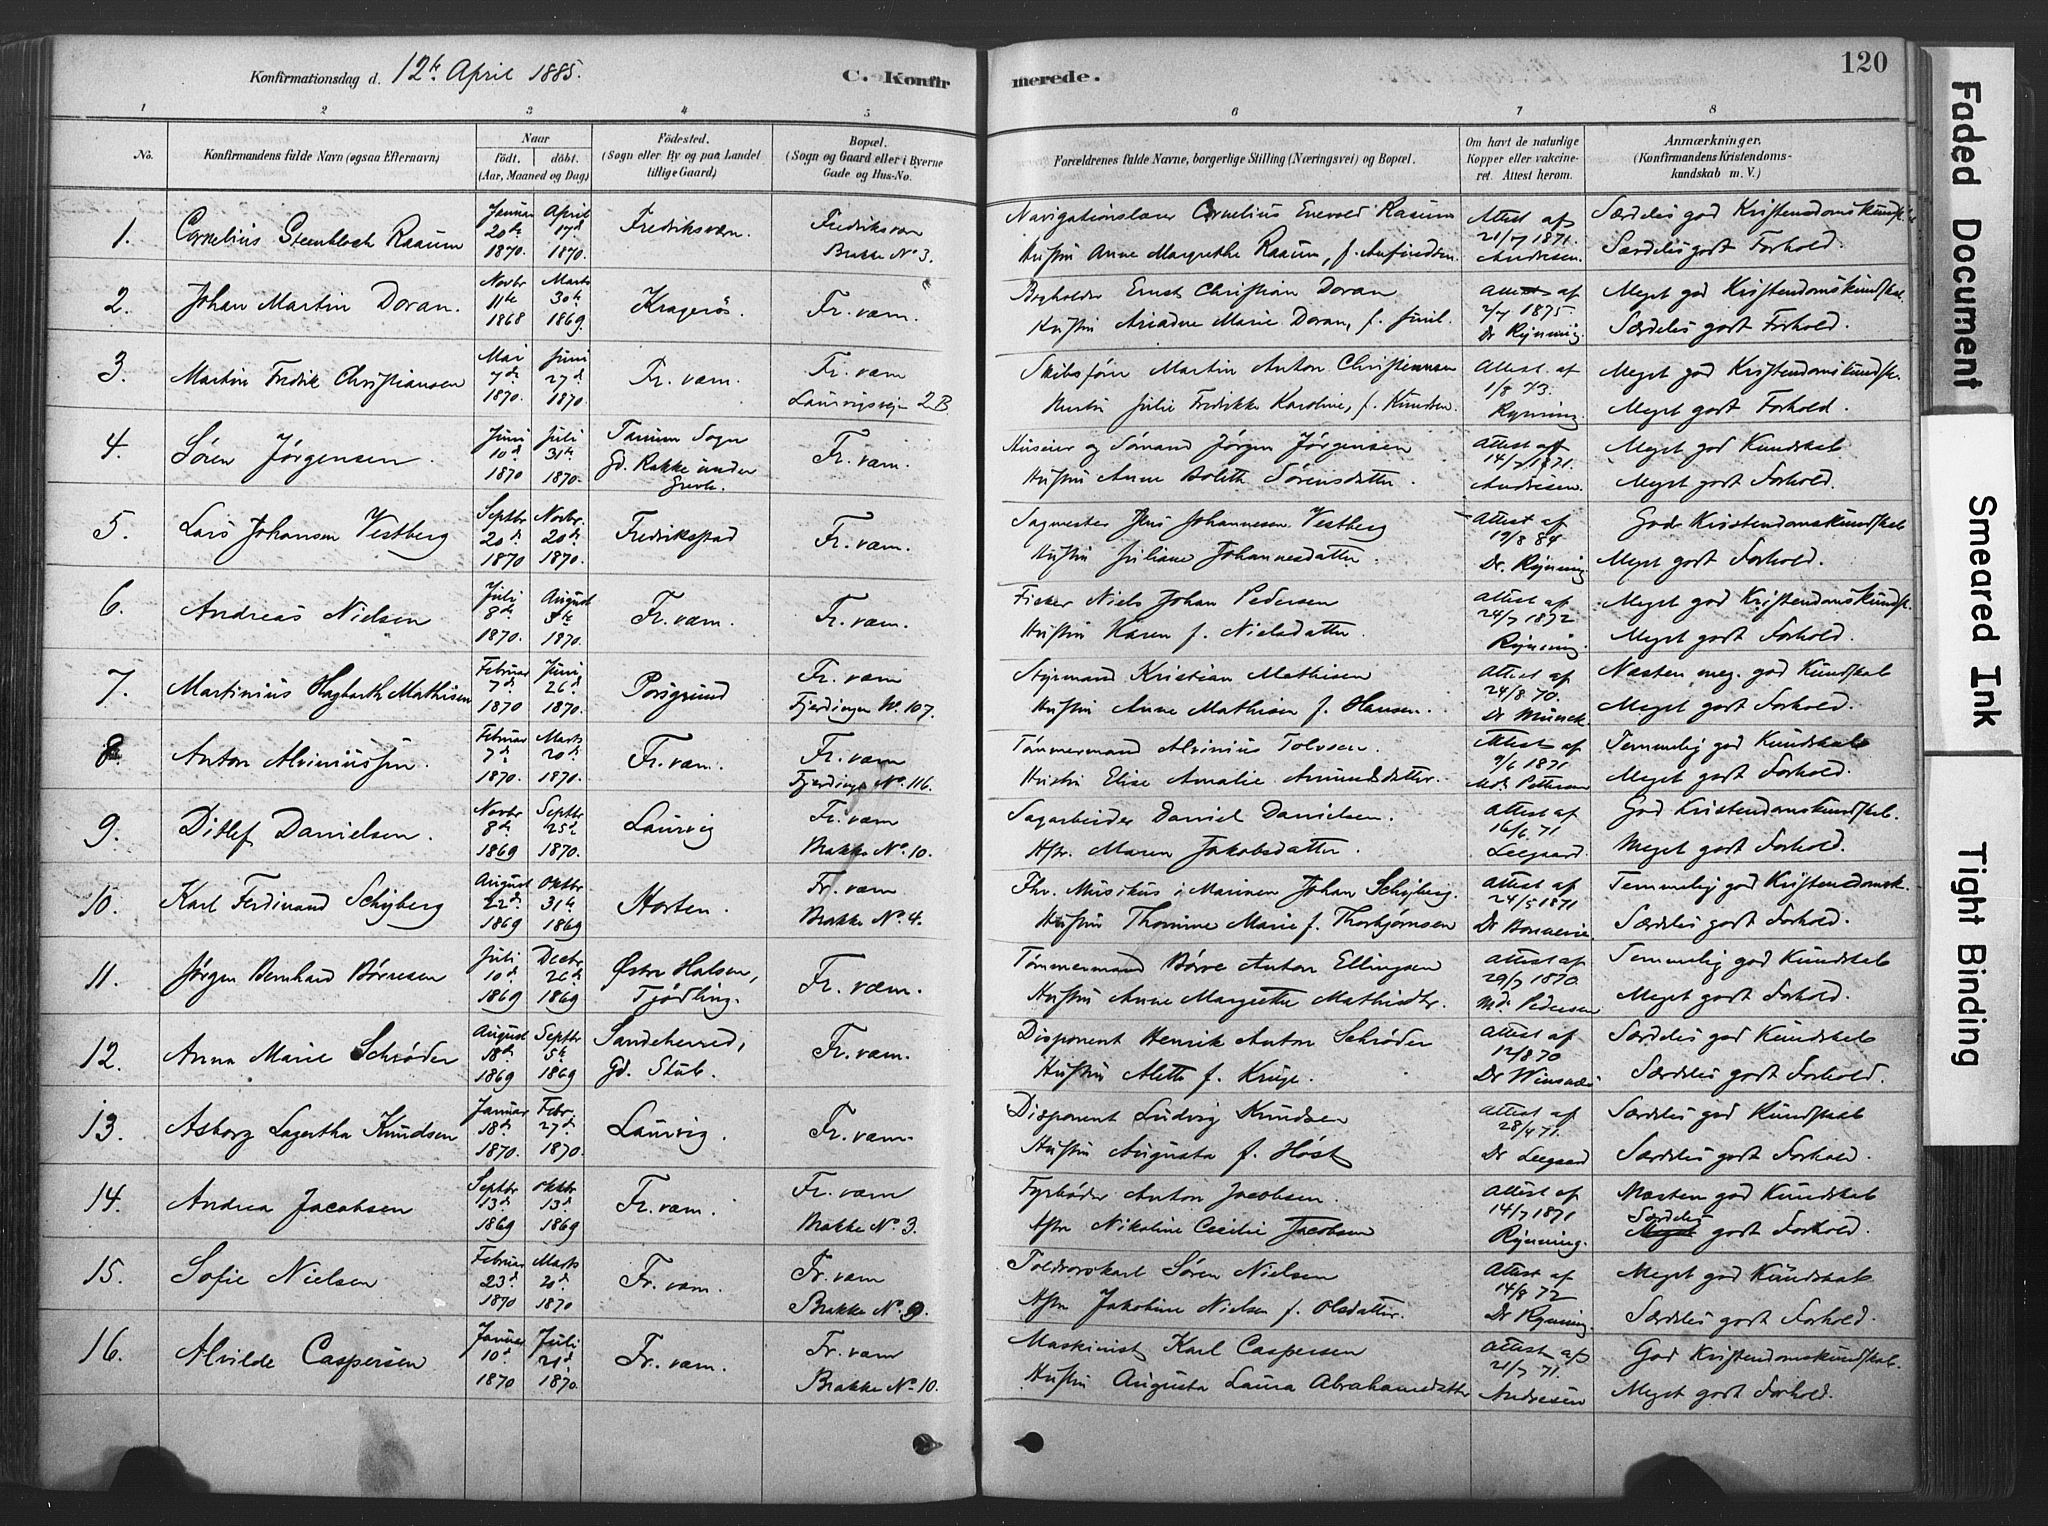 Konfirmationsdag d. 12te April 1885.
C. Konfirmerede.
120
1 2 3 4 5 6 7 8
No.
Konfirmandens fulde Navn (ogsaa Efternavn)
Naar
født. døbt.
(Aar, Maaned og Dag)
Fødested.
(Sogn eller By og paa Landet
tillige Gaard)
Bopæl.
(Sogn og Gaard eller i Byerne
Gade og Hus-No.
Forældrenes fulde Navne, borgerlige Stilling (Næringsvei) og Bopæl.
Om havt de naturlige
Kopper eller vakcine-
ret. Attest herom.
Anmærkninger.
(Konfirmandens Kristendoms-
kundskab m. V.)
1. Cornelius Steenbloch Raaum Januar 20de 1870. April 17d 1870. Fredriksværn. Fredriksværn Brakke No 3. Navigationslærer Cornelius Enevold Raaum Hustru Anne Margrethe Raaum, f. Anfindsen. Attest af 21/7 1871. Andresen. Særdeles god Kristendomskundsk. Særdeles godt Forhold.
2. Johan Martin Doran. Novbr 11te 1868 Marts 30te 1869. Kragerös. Fr.værn. Bogholder Ernst Christian Doran Hustru Ariadne Marie Doran, f. Attest af 2/7 1875. Dr Rynning. Meget god Kristendomskundskab. Særdeles godt Forhold.
3. Martin Fredrik Christiansen Mai 7de 1870. Juni 27d 1870. Fr.værn. Fr.værn Laurvigsveien 2B. Skibsförer Martin Anton Christiansen Hustru Julie Fredrikke Karoline, f. Knudsen. Attest af 1/8 73. Rynning. Meget god Kristendomskundsk. Meget godt Forhold.
4. Sören Jørgensen. Juni 10d 1870 Juli 31te 1870. Tanum Sogn Gd. Rakke under Grevsk. Fr.værn. Huseier og Sömand Jørgen Jørgensen Hustru Anne Bolette Sørensdatter Attest af 14/7 1871. Andresen. Meget god Kundskab Meget godt Forhold.
5. Lars Johansen Vestberg Septbr 20d 1870 Novbr. 20de 1870. Fredrikstad Fr.værn. Sagmester Jens Johannesen Vestberg Hustru Juliane Johannesdatter. Attest af 19/8 84 Dr. Rynning God Kristendomskundskab Meget godt Forhold.
6. Andreas Nielsen Juli 8de 1870. August 1870. Fr.værn. Fr.værn. Fisker Niels Johan Pedersen Hustru Karen f. Nielsdatter. Attest af 24/7 1872 Rynning. Meget god Kristendomskundsk. Meget godt Forhold.
7. Martinius Hagbarth Mathisen Februar 7d. 1870 Juni 26d 1870. Porsgrund Fr.værn Fjerdingen No. 107. Styrmand Kristian Mathisen Hustru Anne Mathisen f. Hansen. Attest af 24/8. 70. Dr Munck. Næsten meg. god Kundskab Meget godt Forhold.
8. Anton Alviniussen. Februar 7d. 1870. Marts 20d 1870. Fr.værn. Fr.værn Fjerdingn No. 116. Tømmermand Alvinius Tolvsen. Hustru Elise Amalie Amundsdatter. Attest af 9/6 1871 Md. Pettersen Temmelig god Kundskab Meget godt Forhold.
9. Ditlef Danielsen. Novbr 8de 1869 Septbr 25d 1870. Laurvig Fr.værn Brakke No. 10. Sagarbeider Daniel Danielsen. Hstr. Maren Jakobsdatter. Attest af 16/6. 71 Leegaard. God Kristendomskundskab. Meget godt Forhold.
10. Karl Ferdinand Schyberg August 22d. 1869 Oktbr 31te 1869 Horten. Fr.værn. Brakke No. 4. Fhv. Musikus i Marinen Johan Schyberg. Hustru Thomine Marie f. Thorbjørnsen Attest af 24/5 1871 Dr Bonnevie. Temmelig god Kristendomsk. Særdeles godt Forhold.
11. Jørgen Bernhard Børresen Juli 10d 1869 Decbr 26d 1869 Østre Halsen, Tjødling. Fr.værn. Tømmermand Børre Anton Ellingsen Hustru Anne Margrethe Mathisdtr. Attest af 29/7 1870. Md. Pedersen Temmelig god Kundskab Meget godt Forhold.
12. Anna Marie Schrøder August 18d. 1869 Septbr 5te 1869 Sandeherred, Gd. Stub. Fr.værn. Disponent Henrik Anton Schrøder Hustru Alette f. Kruge. Attest af 12/8 70 Dr Winsnæs Særdeles god Kundskab Særdeles godt Forhold.
13. Asborg Lagertha Knudsen Januar 18d. 1870. Febr. 27d. 1870. Laurvig. Fr.værn. Disponent Ludvig Knudsen Hustru Augusta f. Høst Attest af 28/4 71. Dr Leegaard Særdeles god Kundskab Særdeles godt Forhold.
14. Andrea Jacobsen Septbr 13d 1869 Oktbr 13d 1869 Fr.værn. Fr.værn Brakke No. 3. Fyrbøder Anton Jacobsen. Hstr Nikoline Cecilie Jacobsen Attest af 14/7 1871 Rynning. Næsten god Kundskab Særdeles Meget godt Forhold.
15. Sofie Nielsen Februar 23d 1870 Marts 20d 1870 Fr.værn. Fr.værn Brakke No. 9. Toldrorskarl Søren Nielsen Hstr Jakobine Nielsen f. Olsdatter. Attest af 14/8 72 Dr Rynning Meget god Kundskab Særdeles godt Forhold.
16. Alvilde Caspersen Januar 10d. 1870 Juli 21d. 1870. Fr.værn. Fr.værn Brakke No. 10. Maskinist Karl Caspersen Hustru Augusta Laura Abrahamsdatter Attest af 21/7 71. Andresen God Kristendomskundskab. Meget godt Forhold.
Faded Document
Smeared Ink
Tight Binding